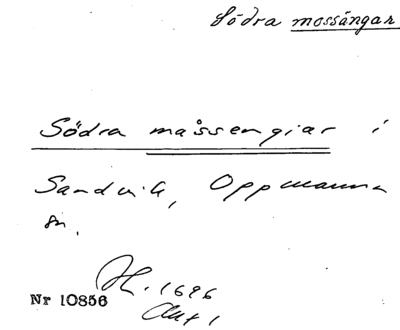 Södra mossängar
Södra måssengiar i
Sandvik, Oppmanna
sn.
H. 1696
Nr 10856
Akt 1